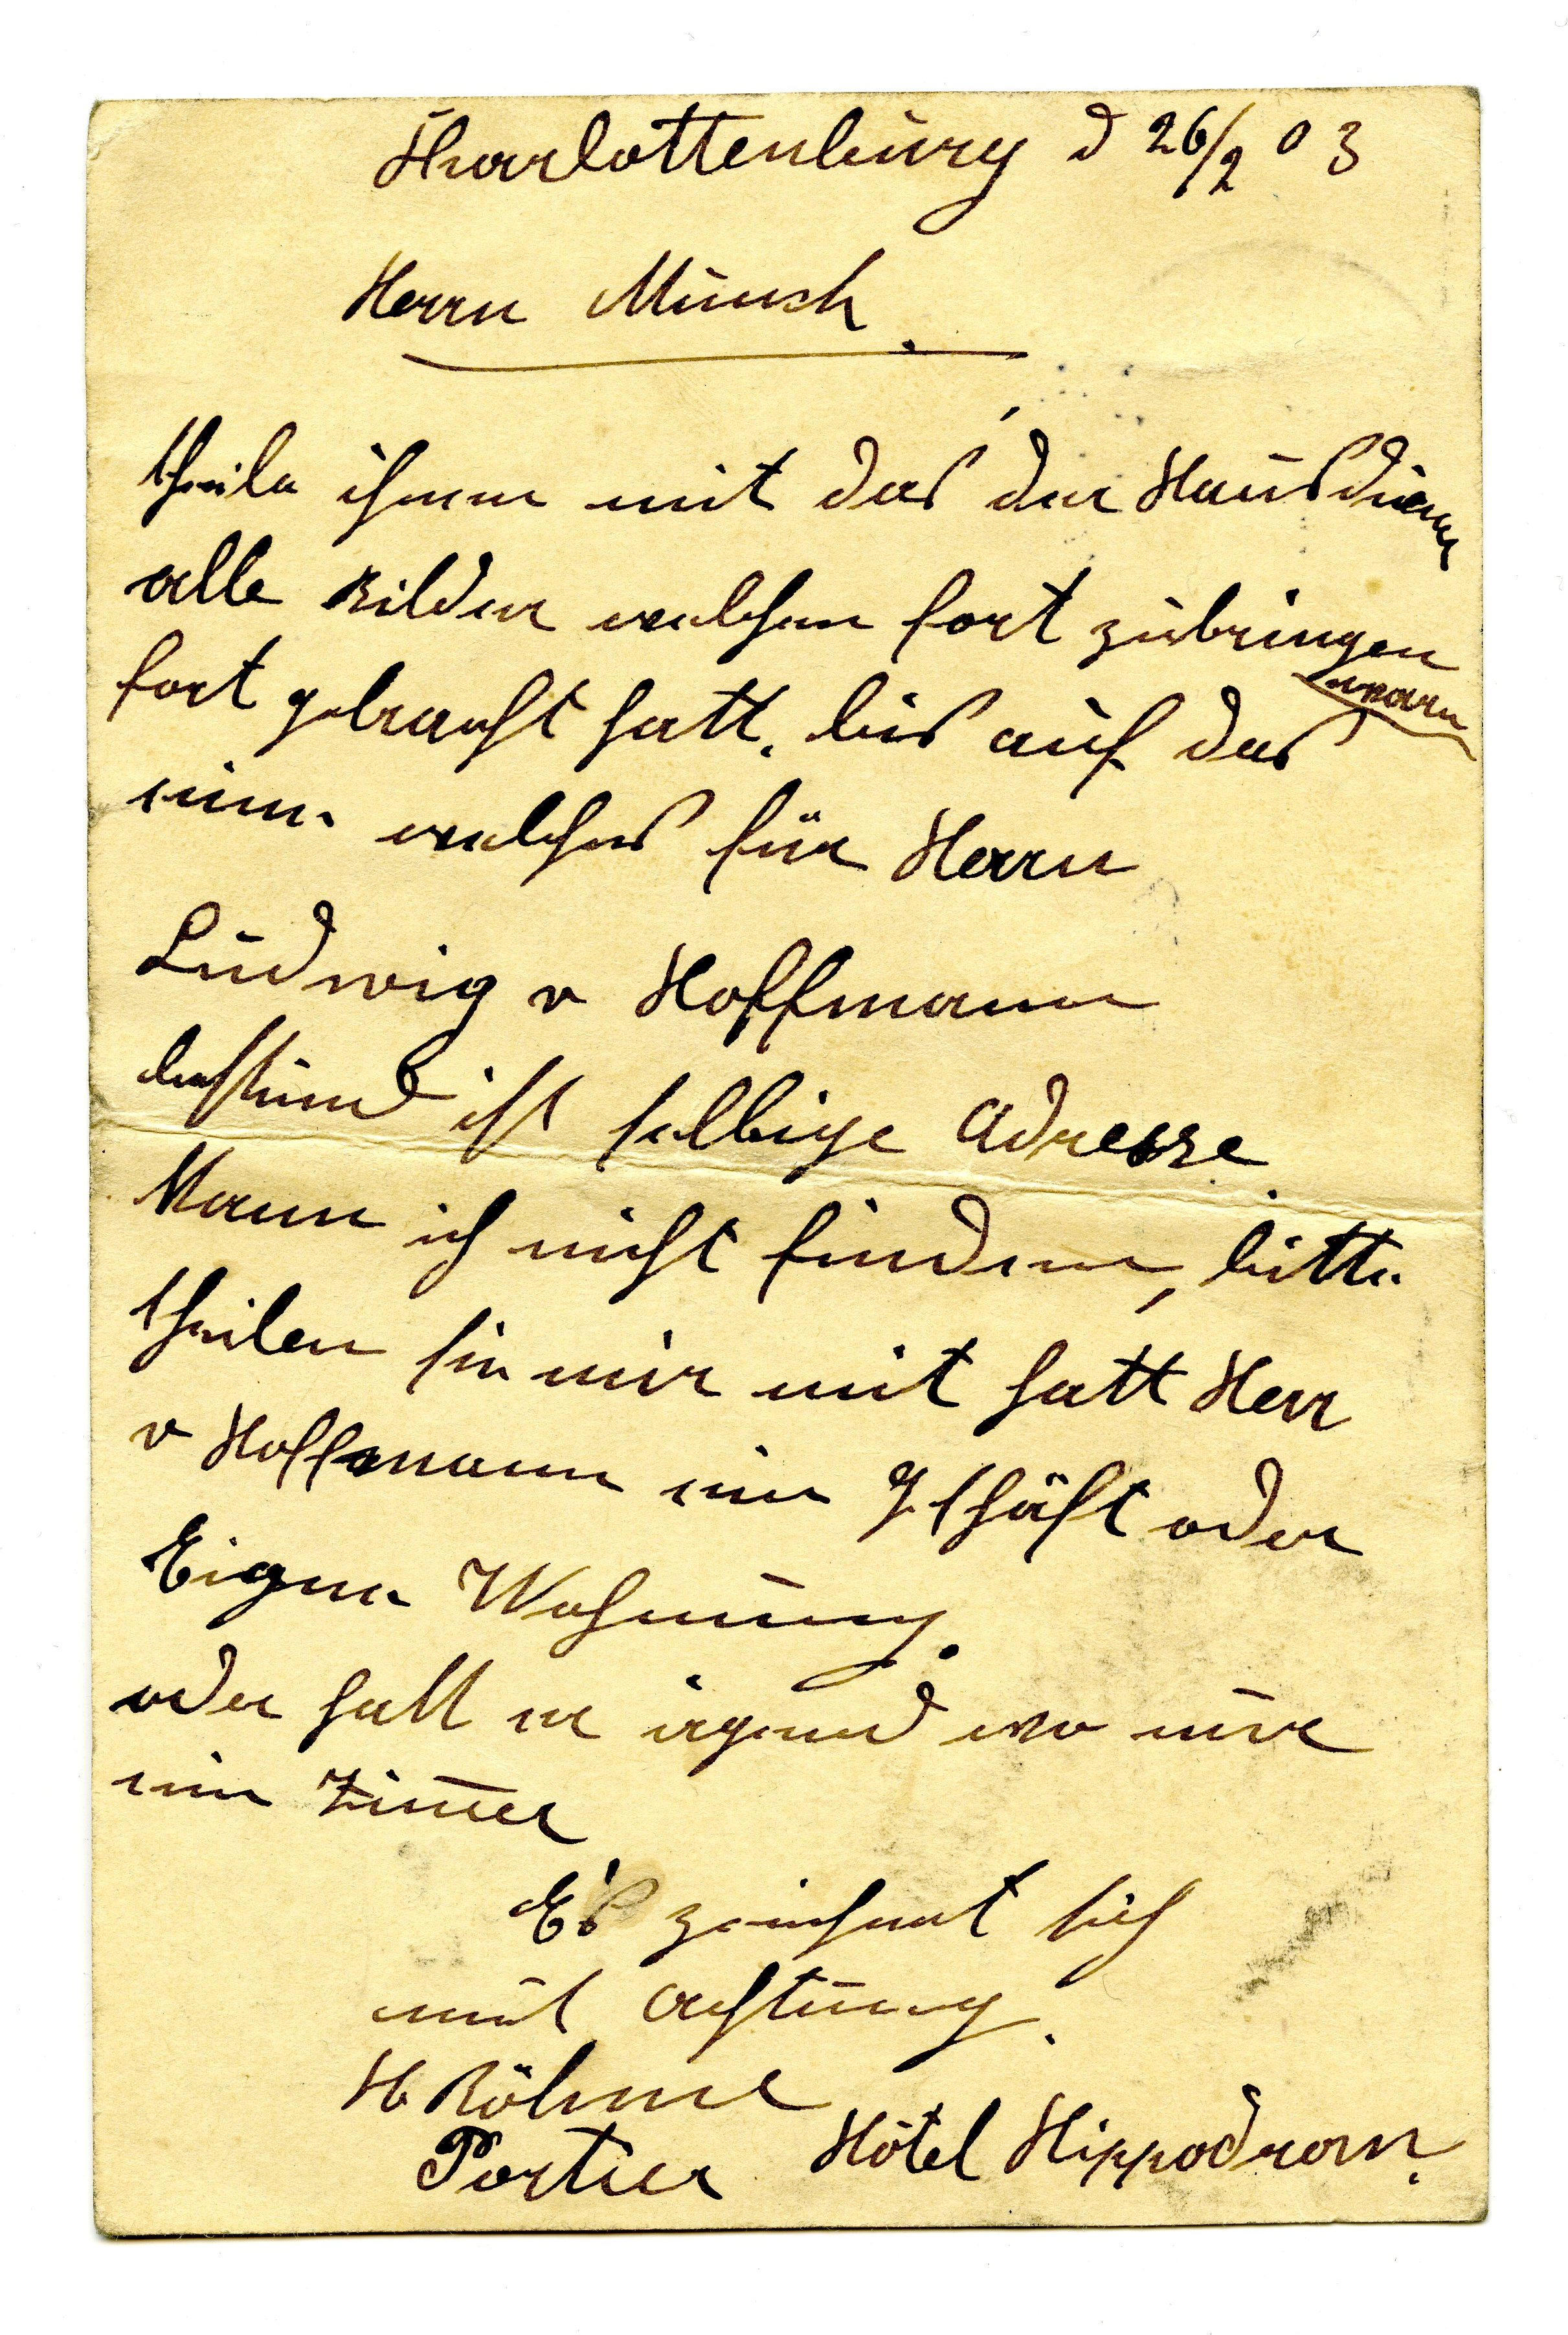 Charlottenburg d 26/2 03
Herrn Münch.
theile ihnen mit das der Hausdiener
alle Bilder welchen fort zubringen
waren
fort gebracht hatt. bis auf das
eine. welches für Herrn
Ludwig v Hoffmann
bestimd ist selbige Adresse.
Kann ich nicht finden, bitte
theilen sie mir mit hatt Herr
v Hoffmann ein Geschäft oder
Eigene Wohnung.
oder hatt er irgend wo nur
ein Zimmer
Es zeichnet sich
mit Achtung.
H Böhme
Portier Hôtel Hippodrom.